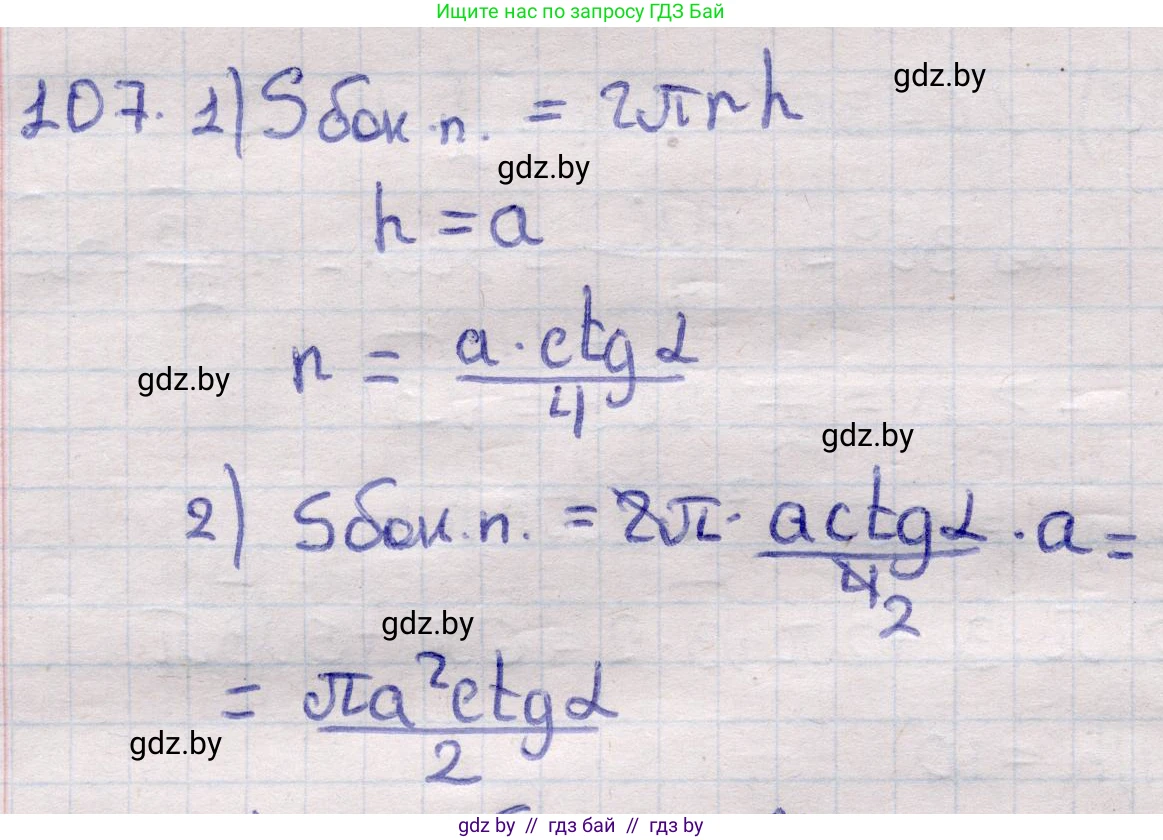 Ищите нас по запросу ГДЗ Бай
107. 1) Sбок.п. = 2πrh
gdz.by
gdz.by
h = a
r = a · ctg α / 4
gdz.by
gdz.by
2) Sбок.п. = 2π · a ctg α / 4 2 · a =
gdz.by
= πa² ctg α / 2
gdz.by
gdz.by // гдз бай // гдз by